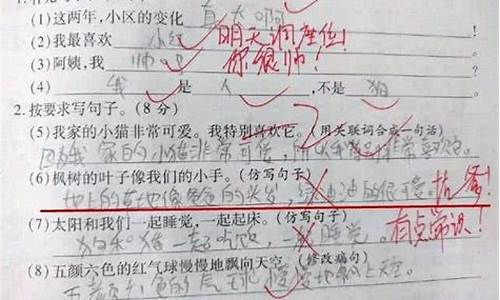 (1)这两年,小区的变化 真大啊
(2)我最喜欢 小红 明天调座位!
(3)阿姨,我 帅吧 你很帅!
(4) 我 是 人 ,不是 狗
2. 按要求写句子。(8 分)
(5)我家的小猫非常可爱。我特别喜欢它。(用关联词合成一句话)
因为我家的小猫非常可爱,所以我非常喜欢它。
(6)枫树的叶子像我们的小手。(仿写句子)
地上的草地像爸爸的头发,绿油油的很可爱。
(7)太阳和我们一起睡觉,一起起床。(仿写句子) 有点常识!
狗和猫一起吃饭,一起睡觉。
(8)五颜六色的红气球慢慢地飘向天空。(修改病句)
五颜六色的气球慢慢地飘上天空。